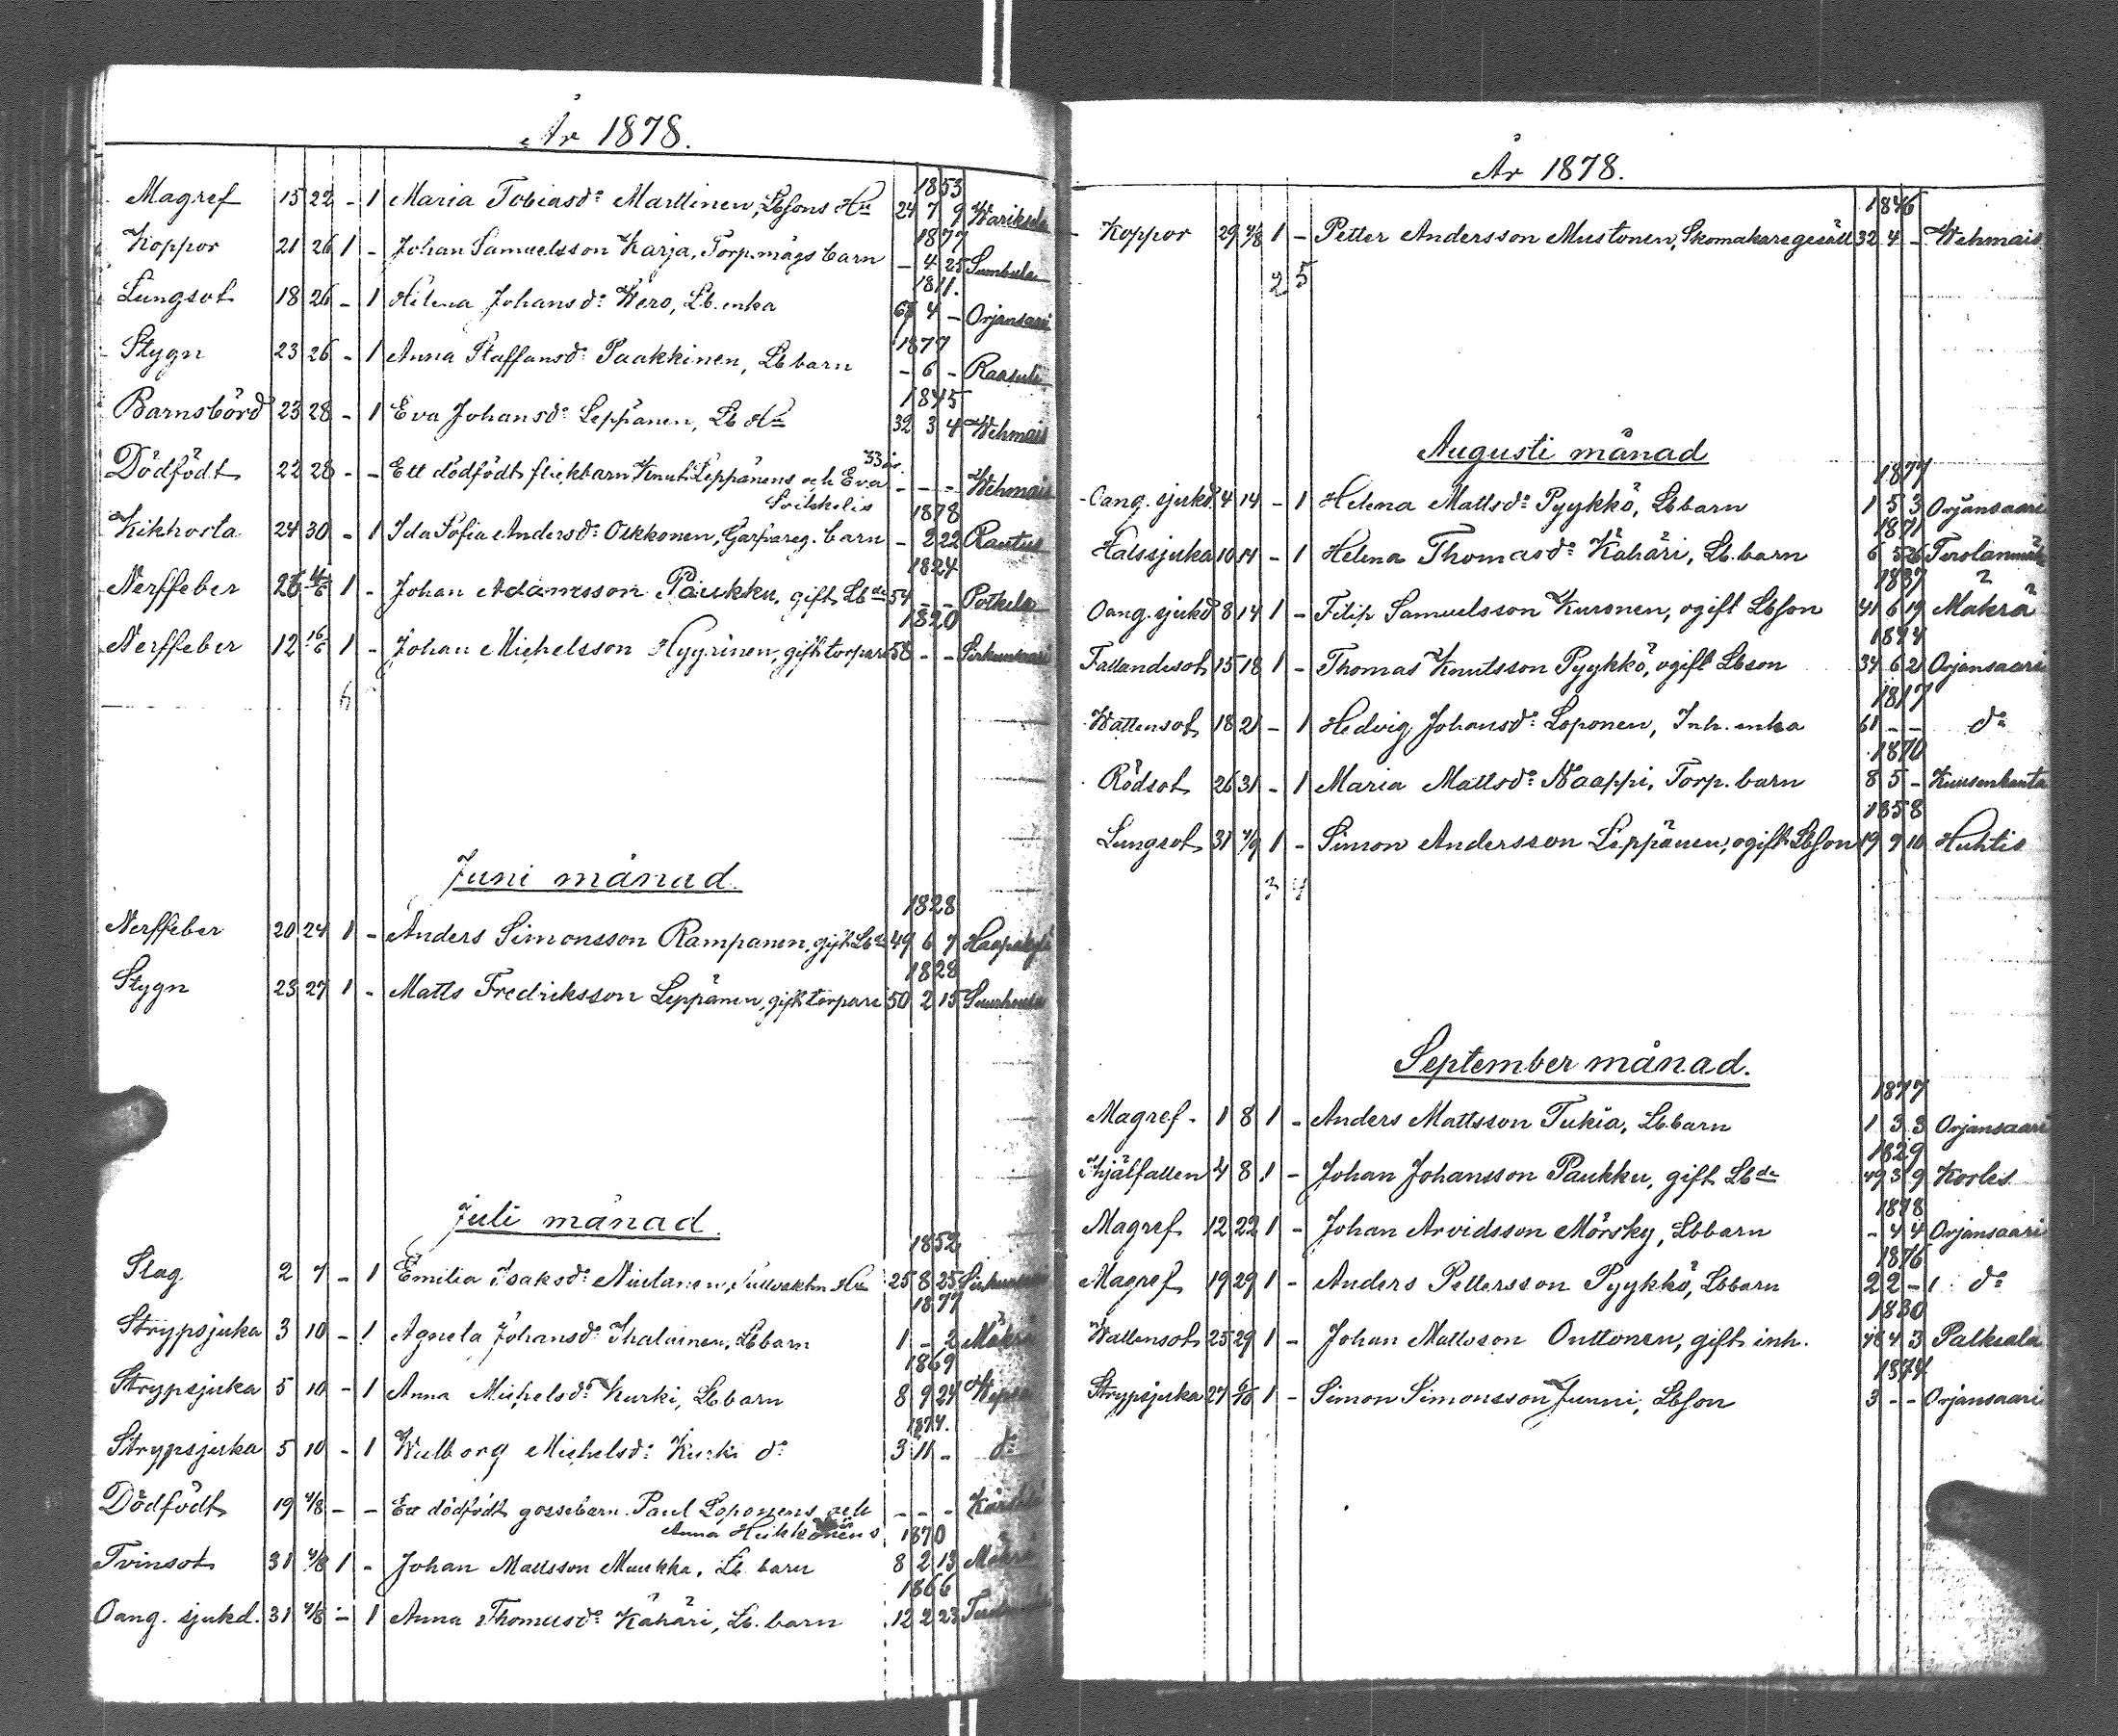 År 1878.
1853
Magref 15 22 - 1 Maria Tobiasd:r Marttinen, Lbsons Hu 24 7 9
1877
Koppor 21 26 1 - Johan Samuelsson Karja, Torp.mågs barn - 4 25 Sumbula
1811.
Lungsot 18 26 - 1 Helena Johansd:r Wero, Lb. enka 67 4 - Orjansaari
1877
Stygn 23 26 - 1 Anna Staffansd:r Paakkinen, Lb barn - 6 - Raasuli
1845
Barnsbörd 23 28 - 1 Eva Johansd:r Leppänen, Lb Hu 32 3 4 Wehmais
33 år.
Dödfödt 22 28 - - Ett dödfödt flickbarn Knut Leppänens och Eva - - - Wehmais
1878
Kikhosta 24 30 - 1 Ida Sofia Andersd:r Olkkonen, Garfvareg. barn - 2 22 Rautus
1824
Nerffeber 26 4/6 1 - Johan Adamsson Paukku, gift Lbde 54 - - Potkela
1820
Nerffeber 12 16/6 1 - Johan Michelsson Hyyrinen, gift torpare 58 - - Sirkunsaari
Juni månad.
1828
Nerffeber 20 24 1 - Anders Simonsson Rampanen, gift Lbde 49 6 7
1828
Stygn 23 27 1 - Matts Fredriksson Leppänen, gift torpare 50 2 15
Juli månad.
1852
Slag 2 7 - 1 Emilia Isaksd:r Hu 25 8 25
1877
Strypsjuka 3 10 - 1 Agneta Johansd:r Ihalainen, Lb barn 1 - 2 Mäkrä
1869
Strypsjuka 5 10 - 1 Anna Michelsd:r Kurki, Lb barn 8 9 24
1874.
Strypsjuka 5 10 - 1 Walborg Michelsd:r Kurki d:o 3 11 - d:o
Dödfödt 19 4/8 - - Ett dödfödt gossebarn Paul Loponens och - - -
Anna Heikkonens 1870
Tvinsot 31 4/8 1 - Johan Mattsson Muukka, Lb barn 8 2 13 Mäkrä
1866
Oang. sjukd. 31 4/8 - 1 Anna Thomasd:r Kähäri, Lb. barn 12 2 23
År 1878.
1846
Koppor 29 4/8 1 - Petter Andersson Mustonen, Skomakaregesäll 32 4 - Wehmais
2 5
Augusti månad
1877
Oang. sjukd. 4 14 - 1 Helena Mattsd:r Pyykkö, Lb barn 1 5 3 Orjansaari
1871
Halssjuka 10 14 - 1 Helena Thomasd:r Kähäri, Lb. barn 6 5 26
1837
Oang. sjukd. 8 14 1 - Filip Samuelsson Kuronen, ogift Lbson 41 6 19 Mäkrä
1844
Fallandesot 15 18 1 - Thomas Knutsson Pyykkö, ogift Lbson 34 6 21 Orjansaari
1817
Wattensot 18 21 - 1 Hedvig Johansd:r Loponen, Inh. enka 61 - - d:o
1870
Rödsot 26 31 - 1 Maria Mattsd:r Naappi, Torp. barn 8 5 - Kuusenkanta
1858
Lungsot 31 4/9 1 - Simon Andersson Leppänen, ogift Lbson 19 9 10 Huhtis
3 4
September månad.
1877
Magref - 1 8 1 - Anders Mattsson Tukia, Lb barn 1 3 3 Orjansaari
1829
8 1 - Johan Johansson Paukku, gift Lbde 49 3 9 Korles
1878
Magref 12 22 1 - Johan Arvidsson Mörsky, Lb barn - 4 4 Orjansaari
1876
Magref 19 29 1 - Anders Pettersson Pyykkö, Lb barn 2 2 - d:o
1830
Wattensot 25 29 1 - Johan Mattsson Outtonen, gift inh. 48 4 3 Palkeala
1874
Strypsjuka 27 6/10 1 - Simon Simonsson Junni, Lbson 3 - - Orjansaari